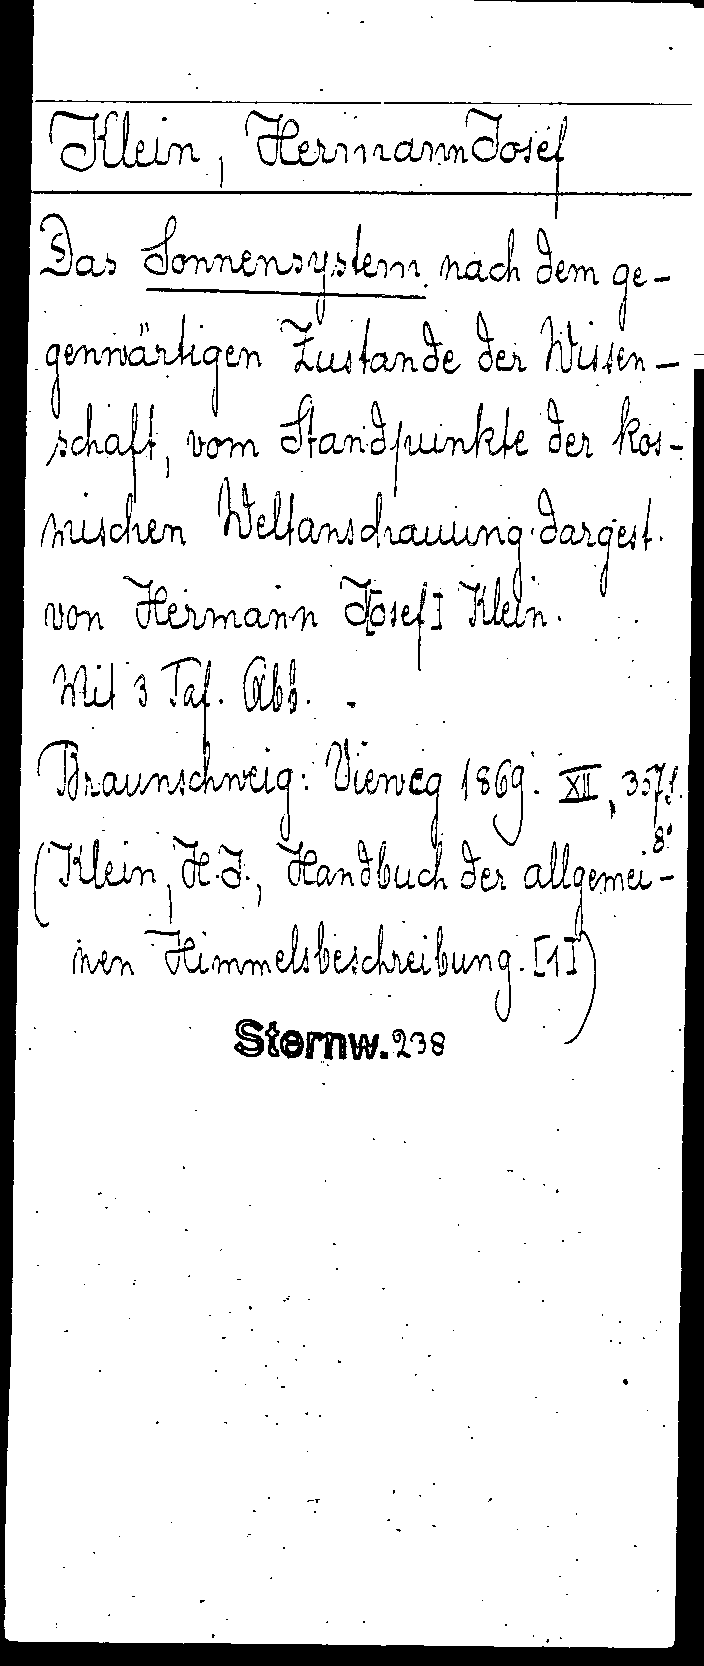 Klein, Hermann Josef
Das Sonnensystem nach dem ge-
genwärtigen Zustande der Wissen-
schaft, vom Standpunkte der kos-
mischen Weltanschauung dargest.
von Hermann J[osef] Klein.
Mit 3 Taf. Abb. -
Braunschweig: Vieweg 1869. XII, 357 S.
8°
(Klein, H. J., Handbuch der allgemei-
nen Himmelsbeschreibung. [1])
Sternw. 238